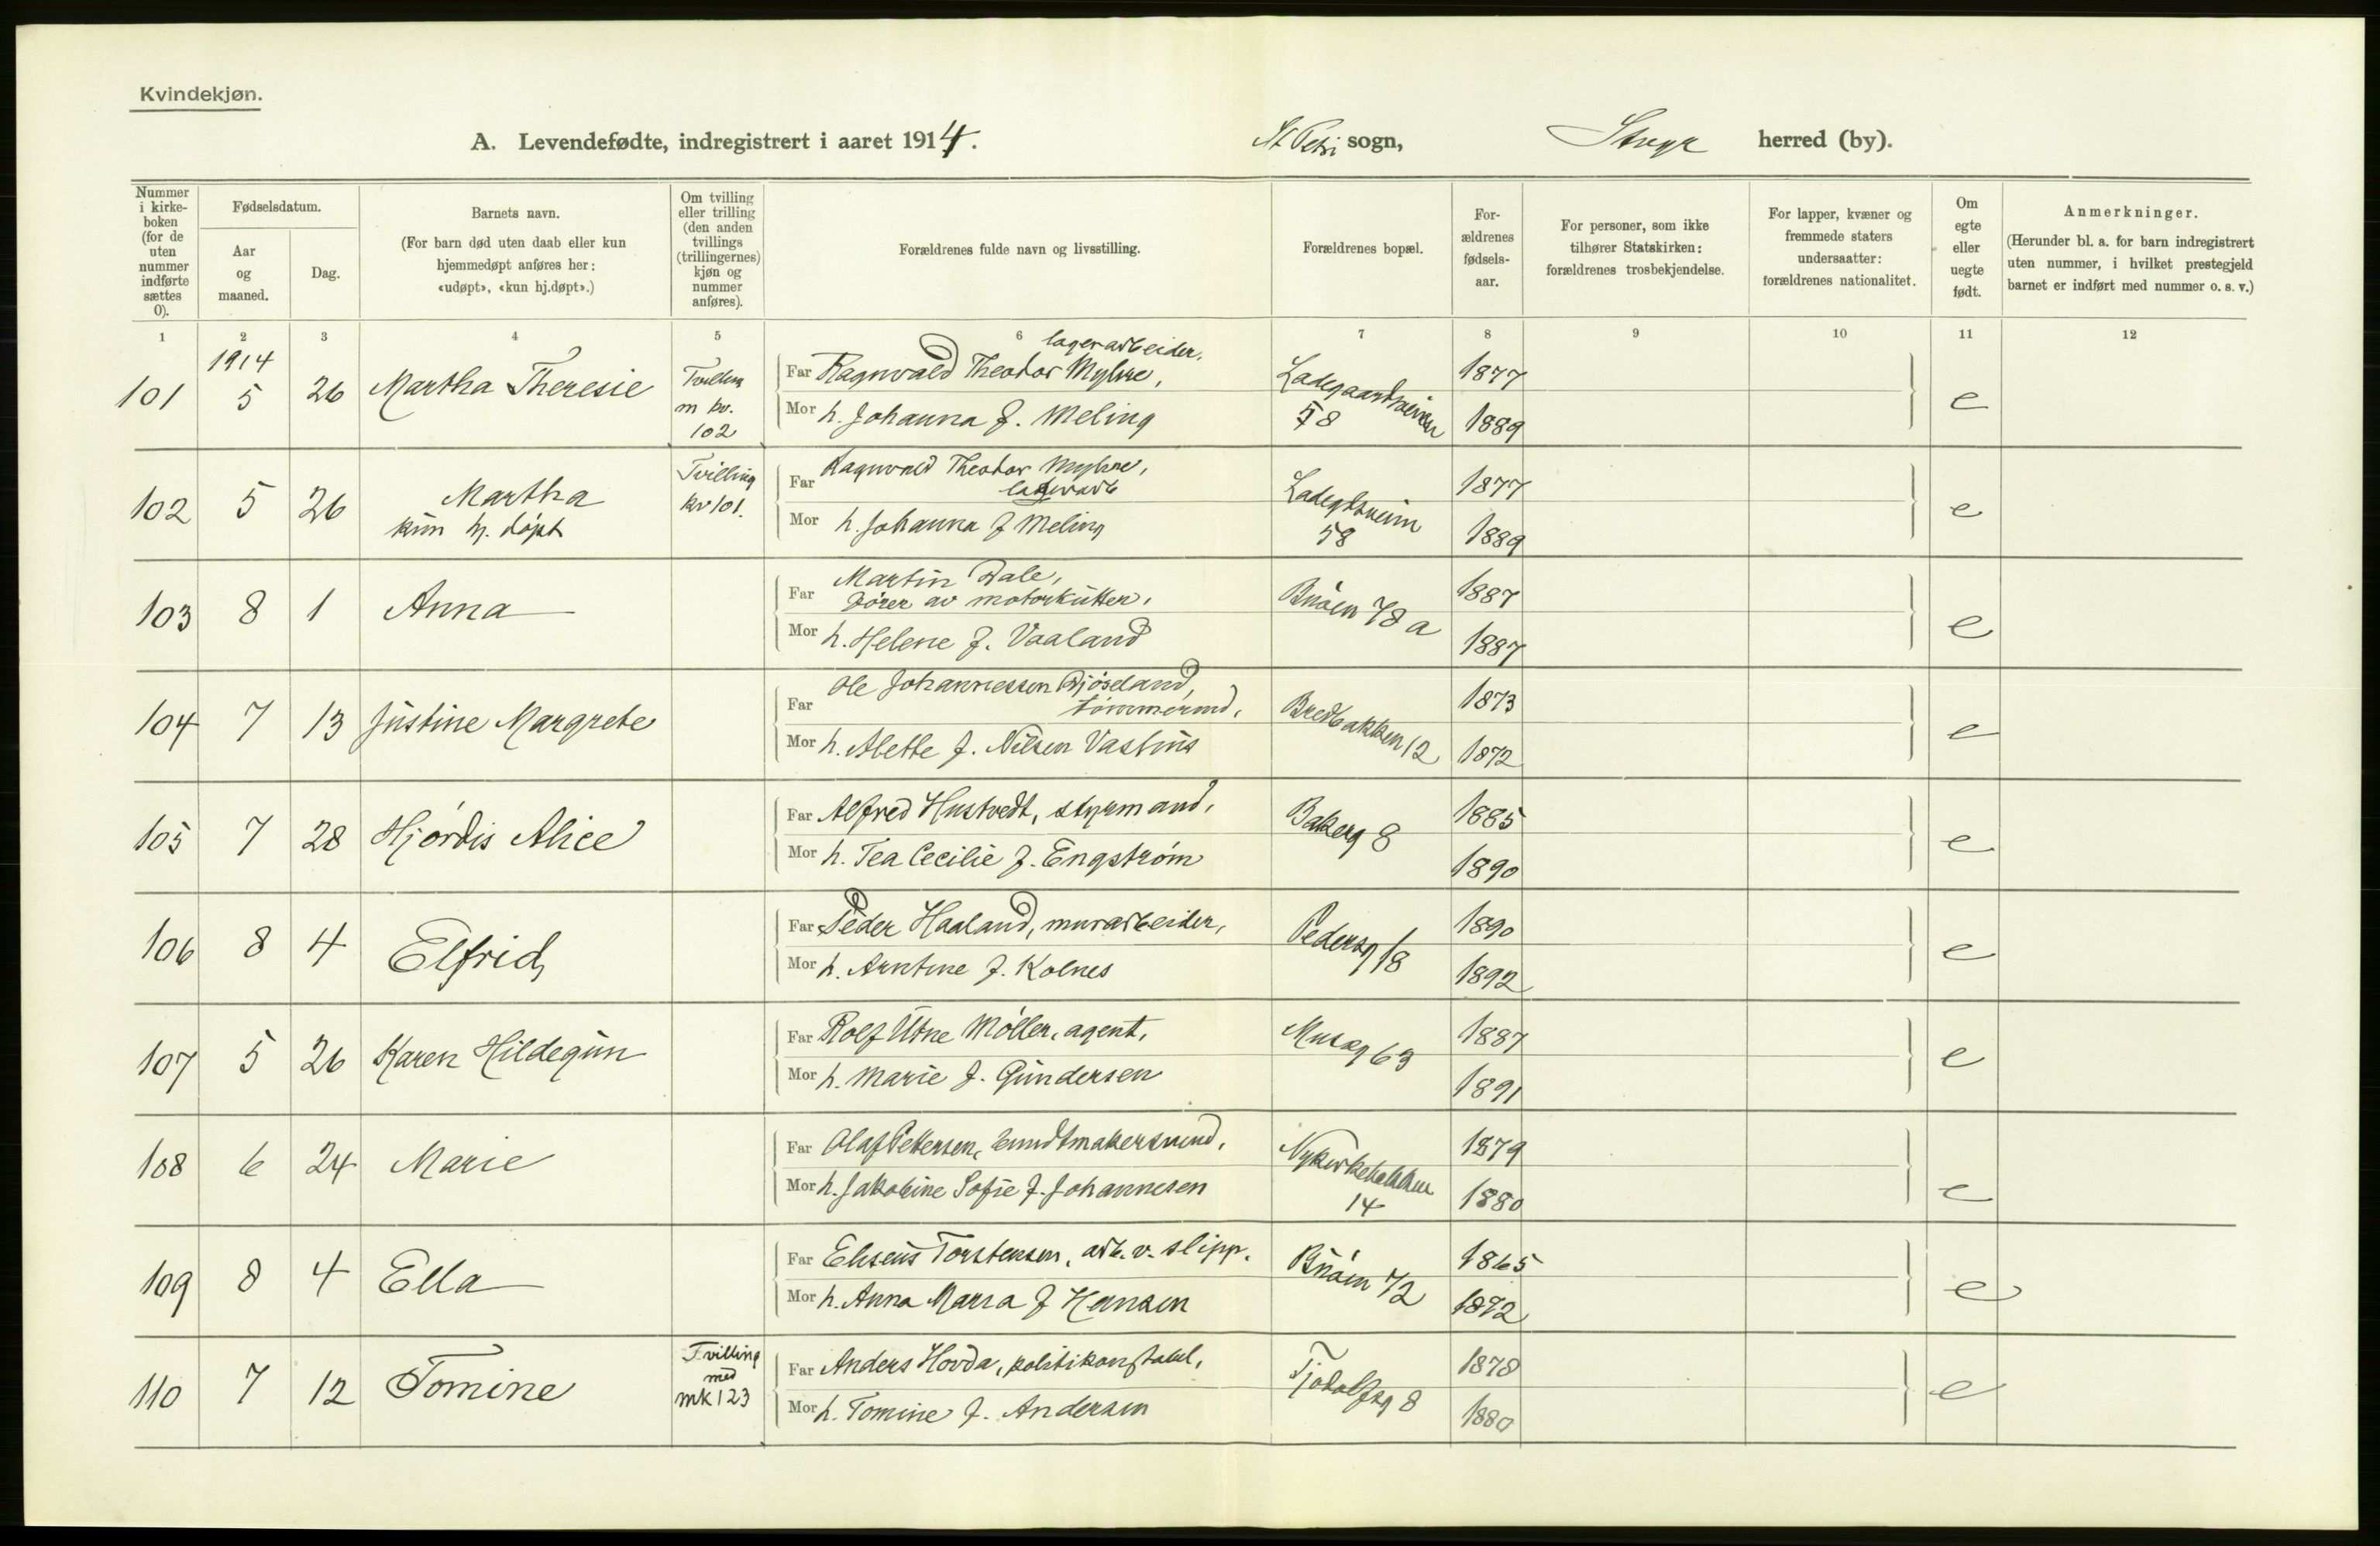 Kvindekjøn.
A. Levendefødte, indregistrert i aaret 1914. St Petri sogn, herred (by).
Nummer i kirkeboken (for de uten nummer indførte sættes 0).
Fødselsdatum.
Aar og maaned.
Dag.
Barnets navn.
(For barn død uten daab eller kun hjemmedøpt anføres her: «udøpt», «kun hj.døpt».)
Om tvilling eller trilling (den anden tvillings (trillingernes) kjøn og nummer anføres).
Forældrenes fulde navn og livsstilling.
Forældrenes bopæl.
Forældrenes fødselsaar.
For personer, som ikke tilhører Statskirken: forældrenes trosbekjendelse.
For lapper, kvæner og fremmede staters undersaatter: forældrenes nationalitet.
Om egte eller uegte født.
Anmerkninger.
(Herunder bl. a. for barn indregistrert uten nummer, i hvilket prestegjeld barnet er indført med nummer o. s. v.)
1 2 3 4 5 6 7 8 9 10 11 12
1914
lagerarbeider.
101 5 26 Martha Theresie m kv. 102 Far Ragnvald Theodor Myhre, 1877 e
Mor h. Johanna f. Meling 58 1889
102 5 26 Martha Tvilling kv 101. Far Ragnvald Theodor Myhre, 1877 e
kun hj. døpt
lagerarb
Mor h. Johanna f Meling 58 1889
103 8 1 Anna Far Martin Dale, Bnøen 78 a 1887 e
fører av motorkutter.
Mor h. Helene f. Vaaland 1887
104 7 13 Justine Margrete Far Ole Johannessen Bredbakken 12 1873 e
tømmermd.
Mor h. Alette f. Nilsen 1872
105 7 28 Hjørdis Alice Far Alfred Hustvedt, styrmand. Bakerg 8 1885 e
Mor h. Tea Cecilie f. Engstrøm 1890
106 8 4 Elfrid Far Peder Haaland, murarbeider, Pedersg 18 1890 e
Mor h. Arntine f. Kolnes 1892
107 5 26 Karen Hildegun Far Rolf Utne Møller, agent. Musæg 63 1887 e
Mor h. Marie f. Gundersen 1891
108 6 24 Marie Far Olaf Pettersen, bundtmakersvend. Nykirkebakken 1879 e
Mor h. Jakobine Sofie f. Johannesen 14 1880
109 8 4 Ella Far Eliseus Torstensen, arb. v. slipp. Bnøen 72 1865 e
Mor h. Anna Maria f Hansen 1872
110 7 12 Tomine Tvilling med mk 123 Far Anders Hovda, politikonstabel. Tjodolfsg 8 1878 e
Mor h. Tomine f. Andersen 1880